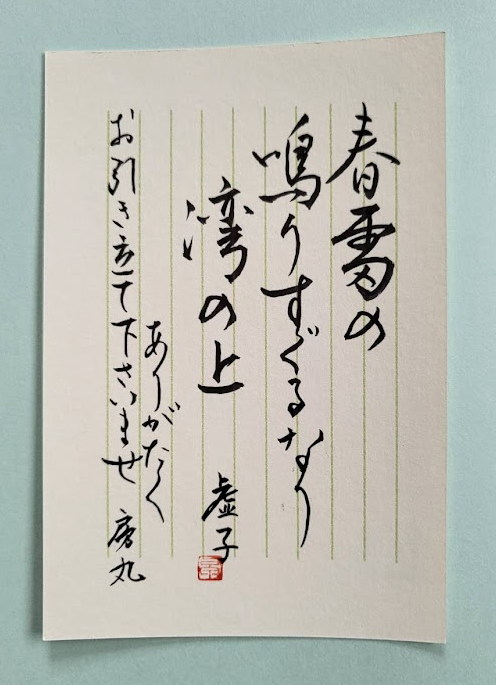 春雷の
鳴りすぐるなり
湾の上
虚子
ありがたく
お引き立て下さいませ